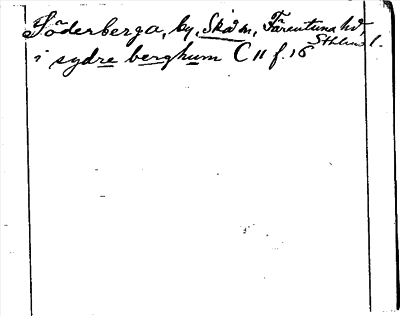 Söderberga, by, Skå sn, Färentuna hd
Sthlms l.
i sydre berghum C 11 f. 16